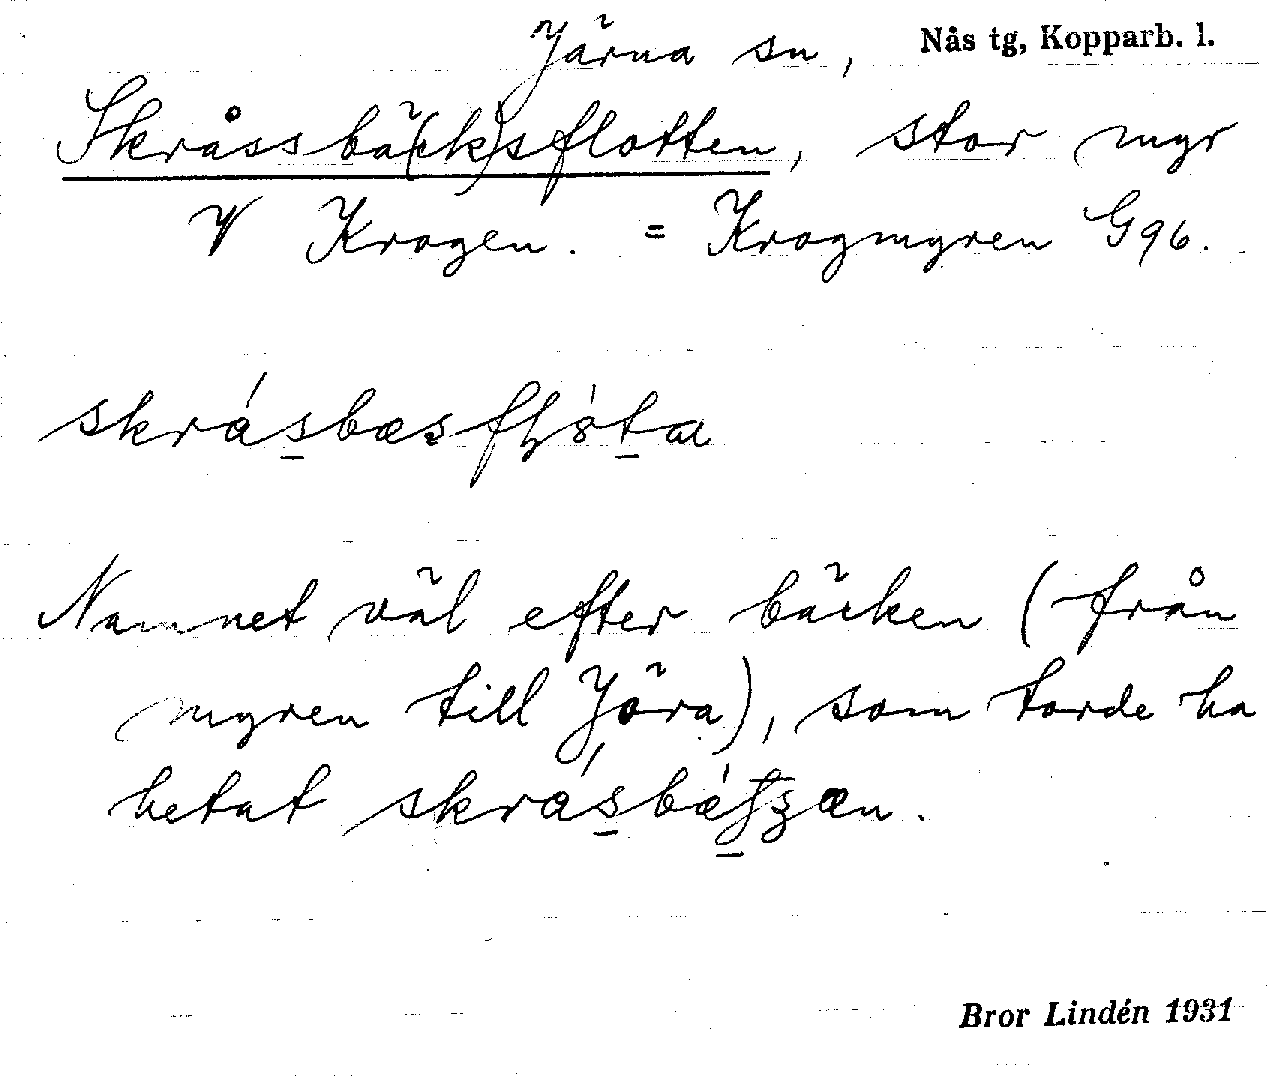 Järna sn, Nås tg, Kopparb. l.
Skråssbä(ck)sflotten, stor myr
V Krogen. = Krogmyren G96.
Namnet väl efter bäcken (från
myren till Jöra), som torde ha
hetat
Bror Lindén 1931